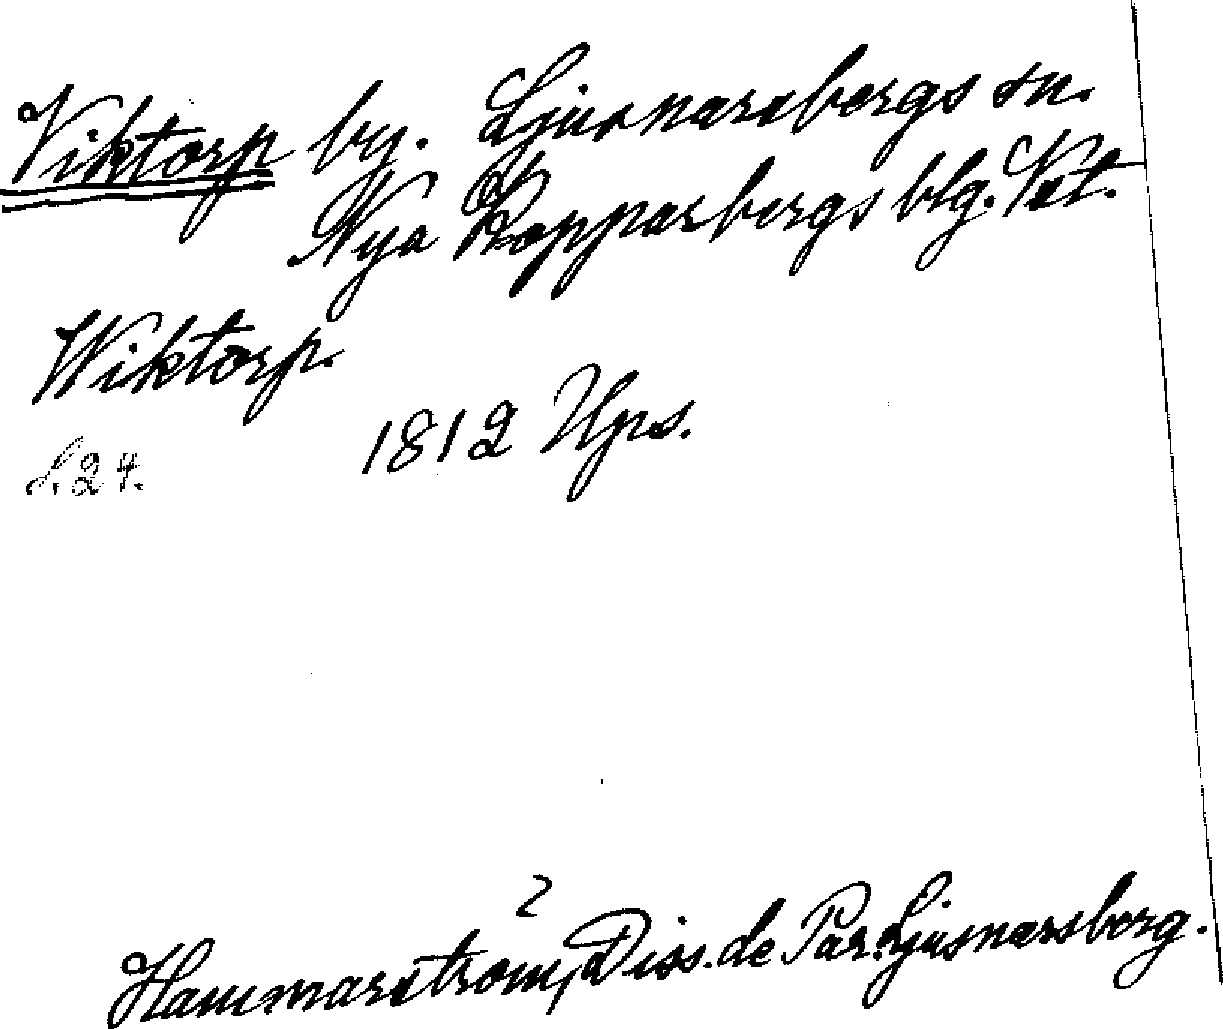 Viktorp by. Ljusnarsbergs sn.
Nya Kopparbergs blg. Vst.
Wiktorp.
1812 Ups.
S. 24.
2
Hammarström, Diss. de Par. Ljusnarsberg.